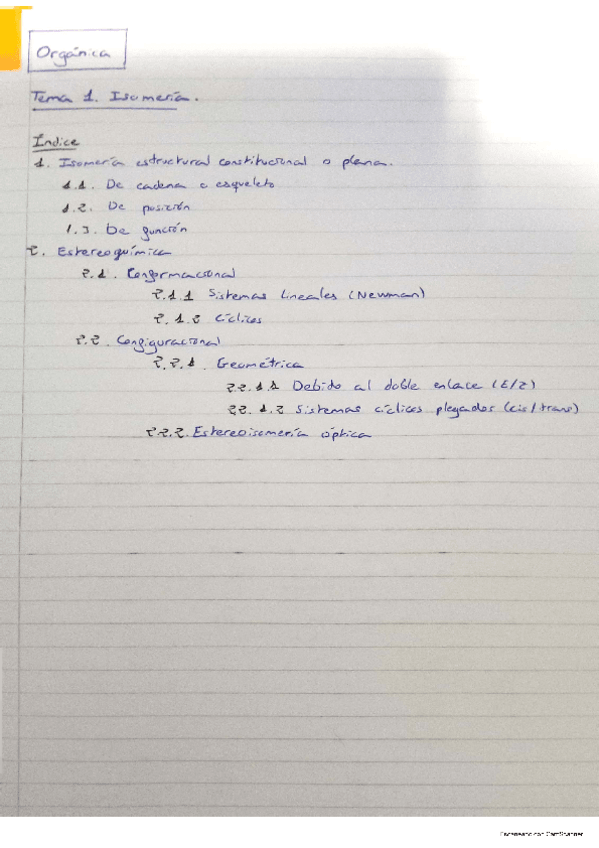 Orgánica
Tema 1. Isomería.
Índice
1. Isomería estructural constitucional o plana.
1.1. De cadena o esqueleto
1.2. De posición
1.3. De función
2. Estereoquímica
2.1. Conformacional
2.1.1 Sistemas lineales (Newman)
2.1.2 Cíclicos
2.2. Configuracional
2.2.1. Geométrica
2.2.1.1 Debido al doble enlace (E/Z)
2.2.1.2 Sistemas cíclicos plegados (cis/trans)
2.2.2. Estereoisomería óptica
Escaneado con CamScanner